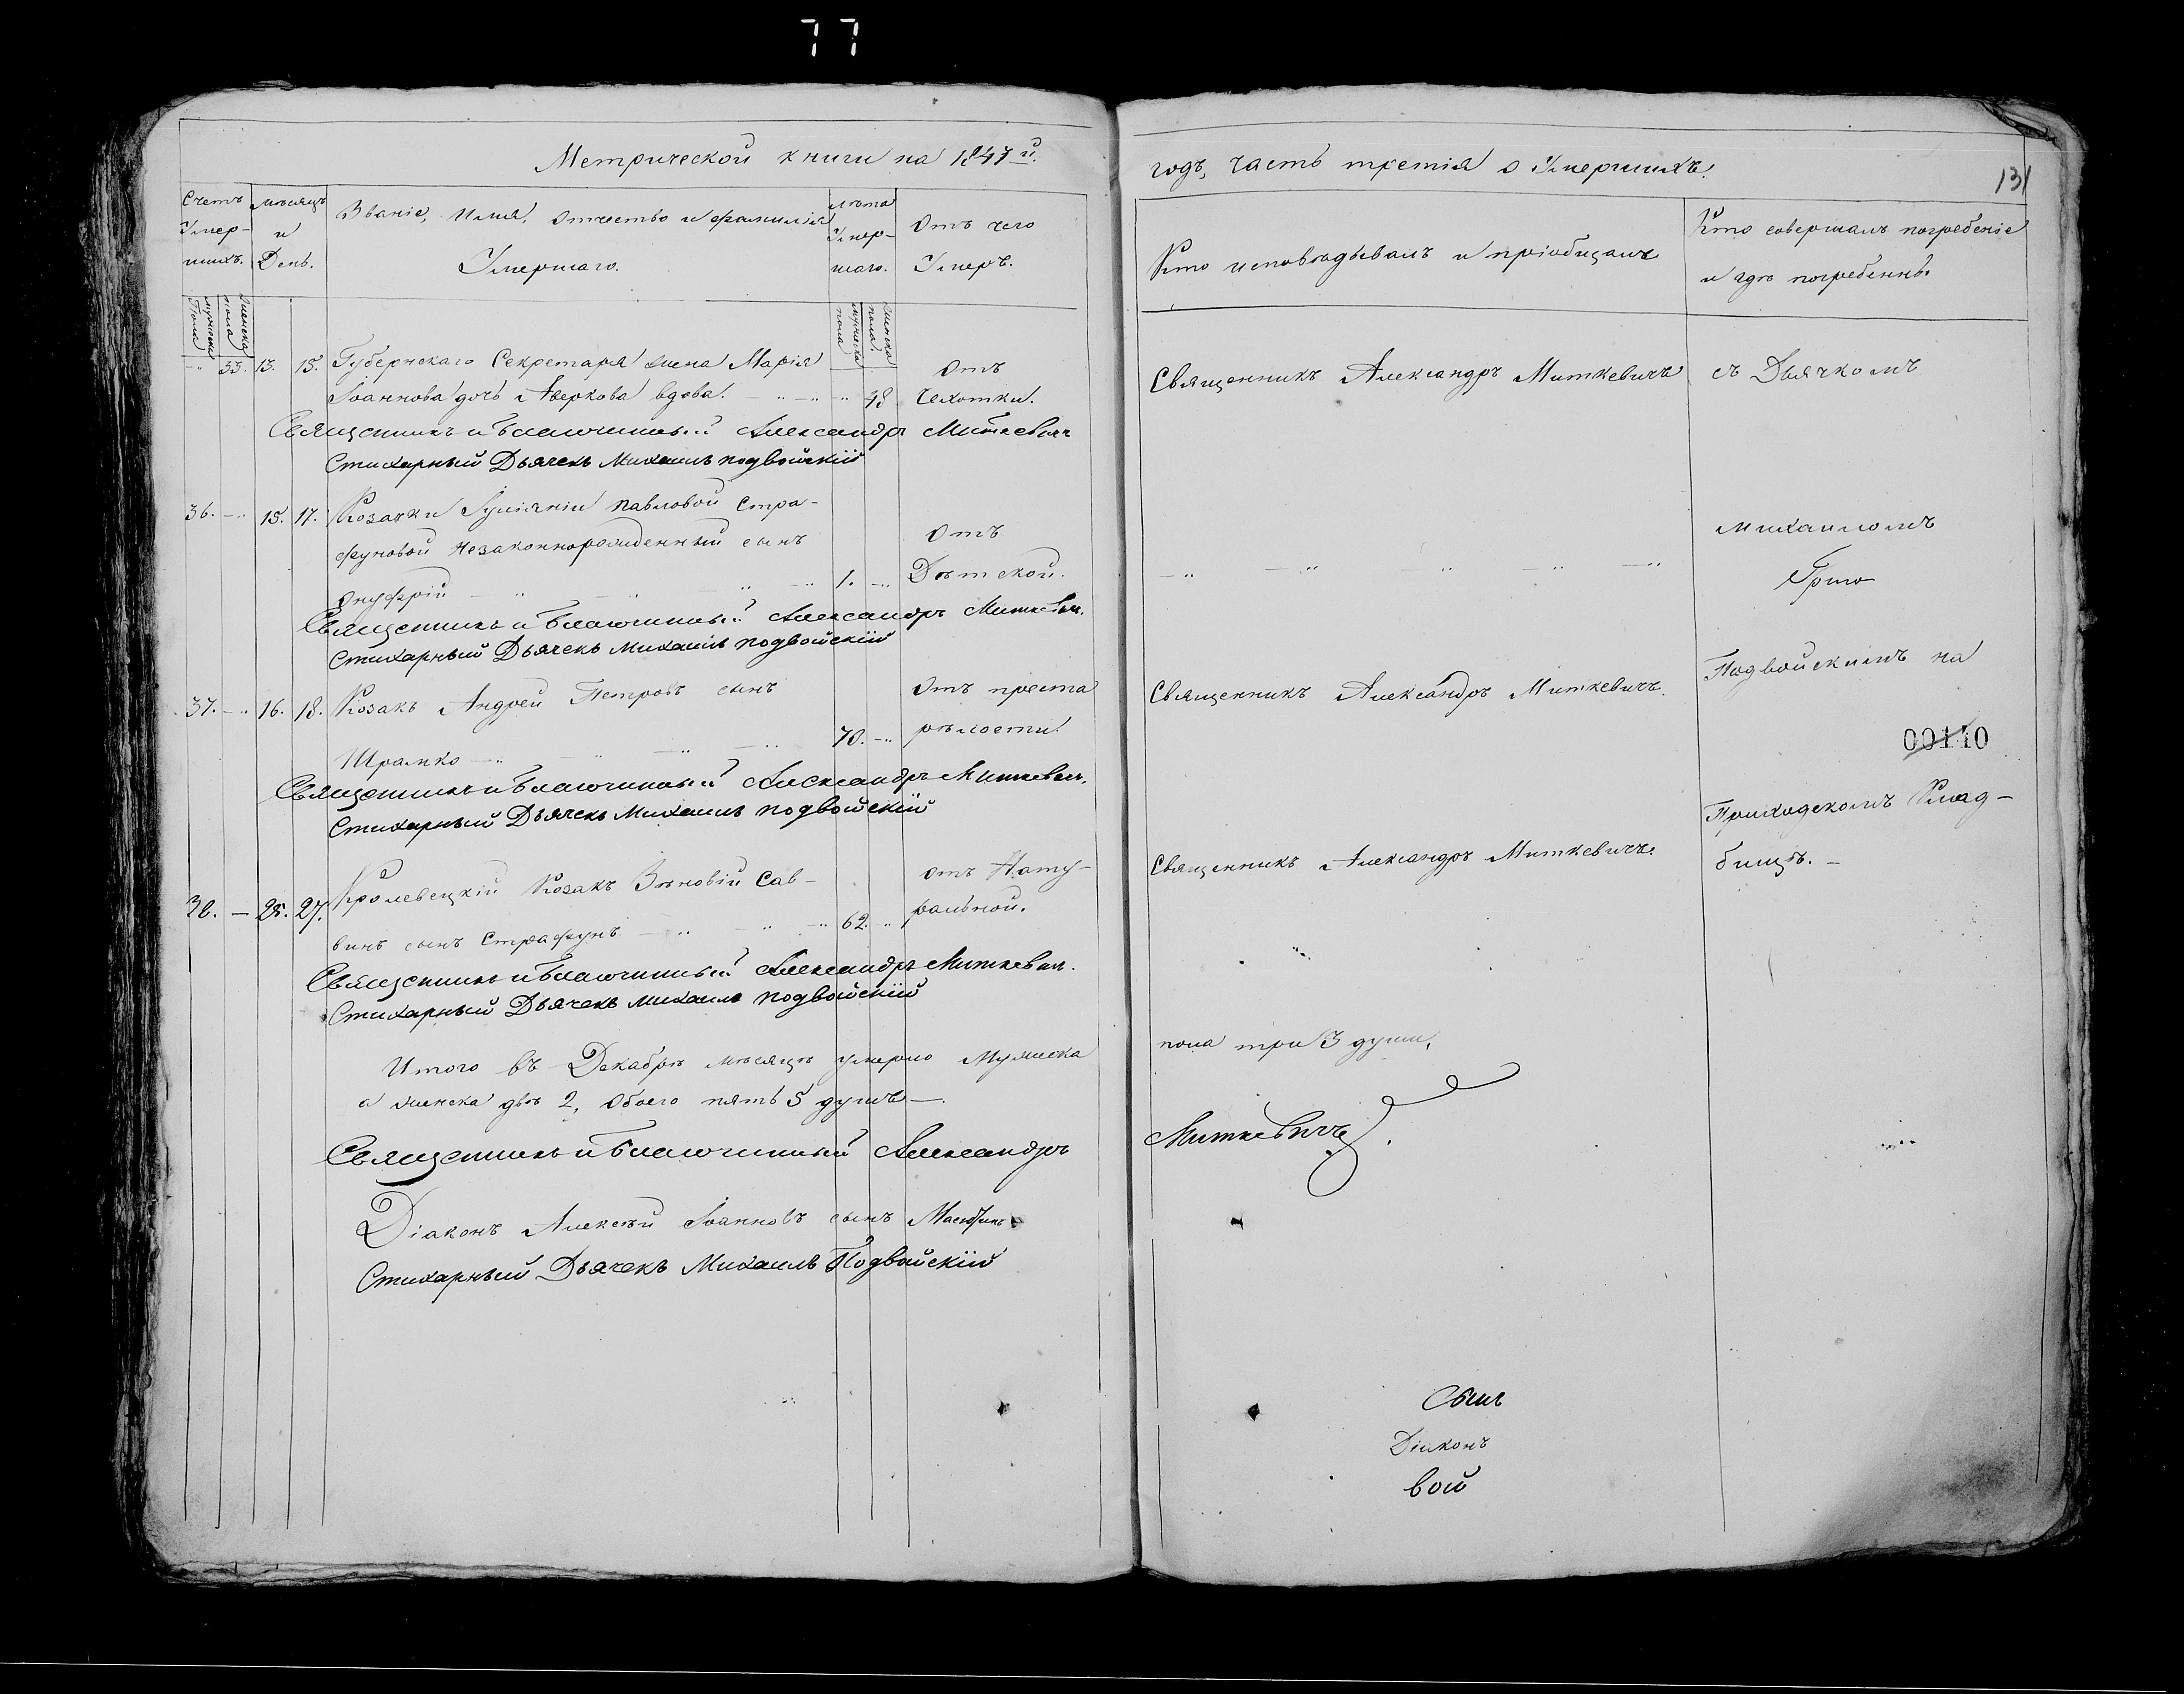 77
Метрической книги на 1847й.
Счетъ Умер- шихъ.
Мѣсяцъ и День.
Званіе, имя, отчество и фамилія Умершаго.
лѣта Умер- шаго.
Отъ чего Умеръ.
мужеска пола
женска пола
мужеска пола
женска пола
33. 13. 15. Губернскаго Секретаря жена Марія
Отъ
Іоаннова дочь Аверкова вдова. 48 Чехотки.
Священникъ и Благочинный Александръ Миткевичъ
Стихарный Дьячекъ Михаилъ подвойскій
36. 15. 17. Козачки Іуліяніи Павловой Стра-
фуновой незаконнорожденный сынъ
Отъ
Онуфрій 1. Дѣтской.
Священникъ и Благочинный Александръ Миткевич.
Стихарный Дьячекъ Михаилъ подвойскій
37. 16. 18. Козакъ Андрей Петровъ сынъ
Отъ преста
Шрамко 70. рѣлости
Священникъ и Благочинный Александръ Миткевич.
Стихарный Дьячекъ Михаилъ подвойскій
38. 25. 27. Кролевецкій Козакъ Зѣновій Сав-
отъ Нату-
винъ сынъ Страфунъ 62. ральной.
Священникъ и Благочинный Александръ Миткевич.
Стихарный Дьячекъ Михаилъ подвойскій
Итого въ Декабрѣ мѣсяцѣ умерло мужеска
а женска двѣ 2, обоего пять 5 душъ.
Священникъ и Благочинный Александръ
Діаконъ Алексѣй Іоанновъ сынъ
Стихарный Дьячекъ Михаилъ Подвойскій
годъ, часть третія о Умершихъ.
131
Кто исповѣдывалъ и пріобщалъ
Кто совершалъ погребеніе
и гдѣ погребенны.
Священникъ Александръ Миткевичъ
съ Дьячкомъ
Михаиломъ
Григо
Подвойскимъ на
Священникъ Александръ Миткевичъ.
00110
Приходскомъ Клад-
Священникъ Александръ Миткевичъ.
бищѣ.
пола три 3 души,
Миткевичъ.
Діаконъ
вой